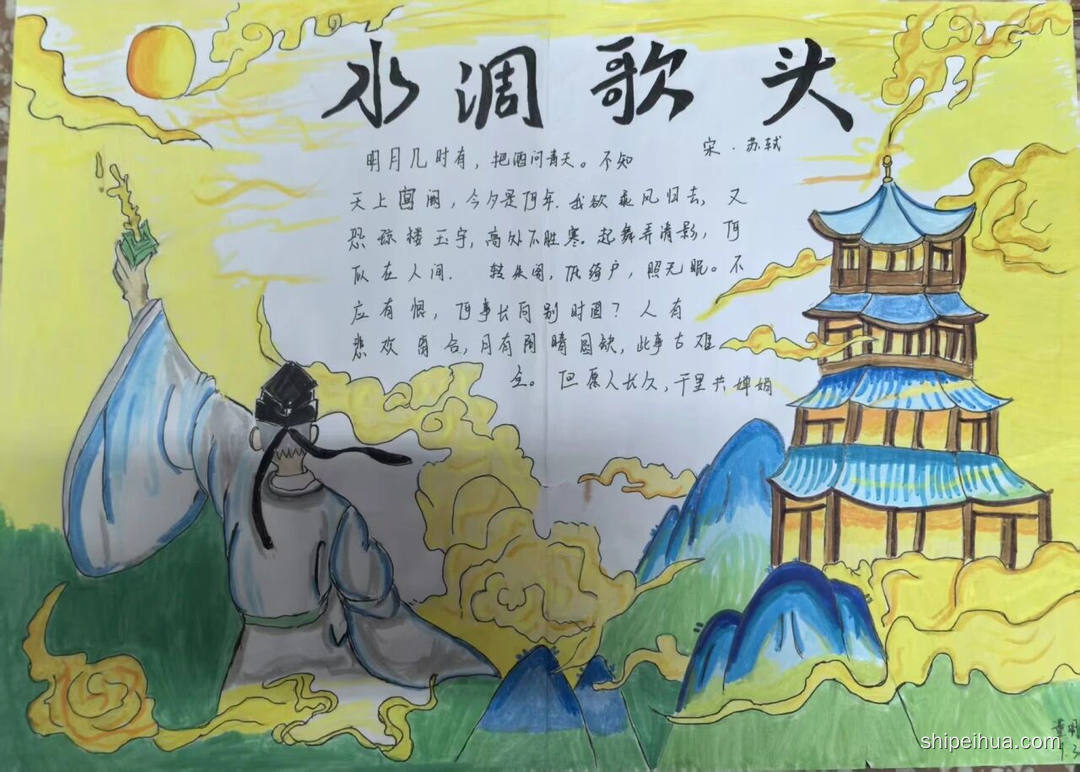 水淍歌头
宋.苏轼
明月几时有，把酒问青天。不知
天上宫阙，今夕是何年.我欲乘风归去，又
恐琼楼玉宇，高处不胜寒.起舞弄清影，何
似在人间. 转朱阁，低绮户，照无眠。不
应有恨，何事长向别时圆？人有
悲欢离合，月有阴晴圆缺，此事古难
全。但愿人长久，千里共婵娟
shipeihua.com